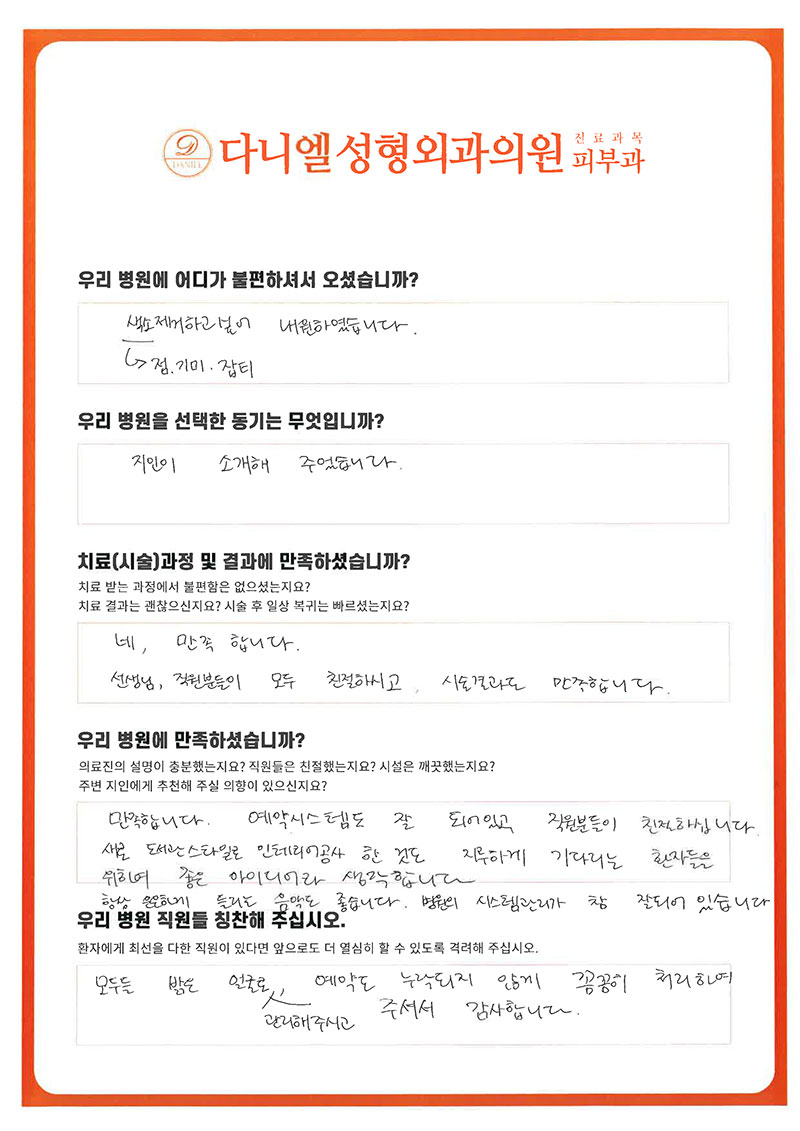 DANIEL
다니엘성형외과의원 진료과목 피부과
우리 병원에 어디가 불편하셔서 오셨습니까?
색소제거하고싶어 내원하였습니다.
↳ 점.기미.잡티
우리 병원을 선택한 동기는 무엇입니까?
지인이 소개해 주었습니다.
치료(시술)과정 및 결과에 만족하셨습니까?
치료 받는 과정에서 불편함은 없으셨는지요?
치료 결과는 괜찮으신지요? 시술 후 일상 복귀는 빠르셨는지요?
네, 만족 합니다.
선생님, 직원분들이 모두 친절하시고, 시술결과도 만족합니다.
우리 병원에 만족하셨습니까?
의료진의 설명이 충분했는지요? 직원들은 친절했는지요? 시설은 깨끗했는지요?
주변 지인에게 추천해 주실 의향이 있으신지요?
만족합니다. 예약시스템도 잘 되어있고 직원분들이 친절하십니다.
새로 도서관스타일로 인테리어공사 한 것도 지루하게 기다리는 환자들을
위하여 좋은 아이디어라 생각합니다
항상 은은하게 들리는 음악도 좋습니다. 병원의 시스템관리가 참 잘되어 있습니다
우리 병원 직원들 칭찬해 주십시오.
환자에게 최선을 다한 직원이 있다면 앞으로도 더 열심히 할 수 있도록 격려해 주십시오.
모두들 밝은 얼굴로, 예약도 누락되지 않게 꼼꼼히 처리하여
관리해주시고 주셔서 감사합니다.